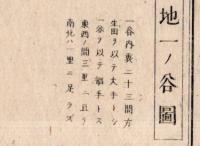 地一ノ谷圖
一谷内裏二十三間方
生田ヲ以テ大手トシ
一谷ヲ以テ搦手トス
東西ノ間三里ニ亘リ
南北ハ一里ニ足ラズ